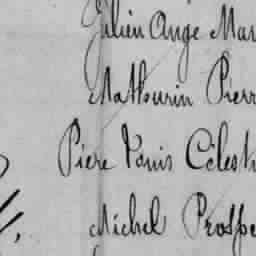 Julien Ange Mar
Mathurin Pierr
Piere Louis Célest
Michel Prospe